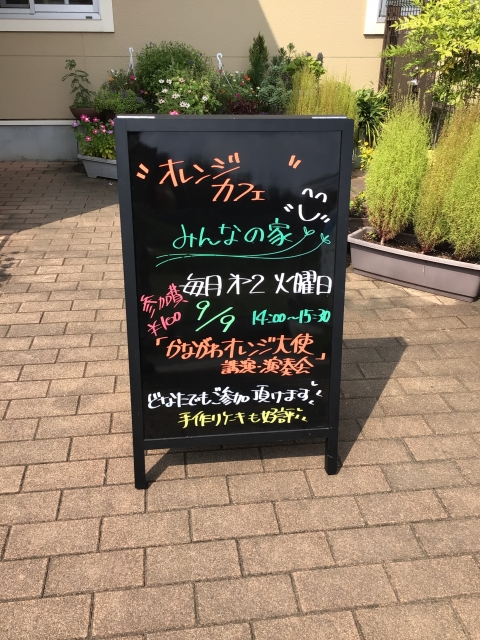 "オレンジ
カフェ"
みんなの家
毎月 才2 火曜日
参加費
¥100
9/9 14:00〜15:30
「かながわオレンジ大使」
講演・演奏会
どなたでもご参加頂けます
手作りケーキも好評